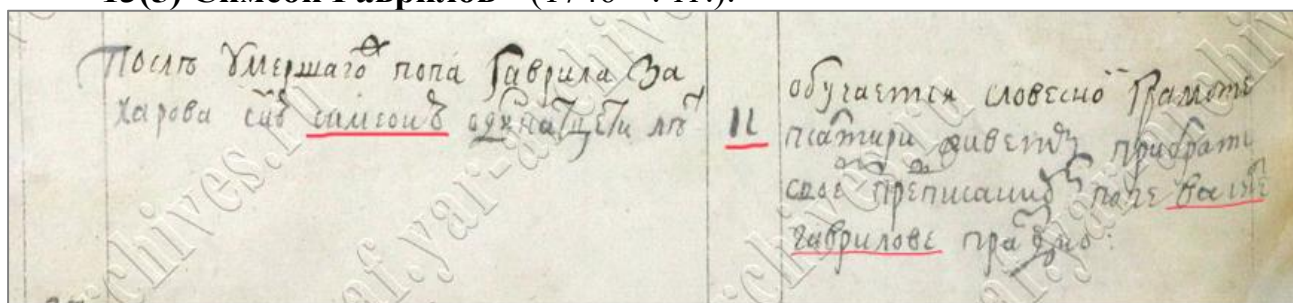 Послѣ Умершаго попа Гаврила За
харова сн҃ъ симеонъ одиннатцети лѣтъ
11
обучается словесно грамоте
псалтири живетъ при брате
своѣ преписанномъ попе Василье
гавrилове праздно: